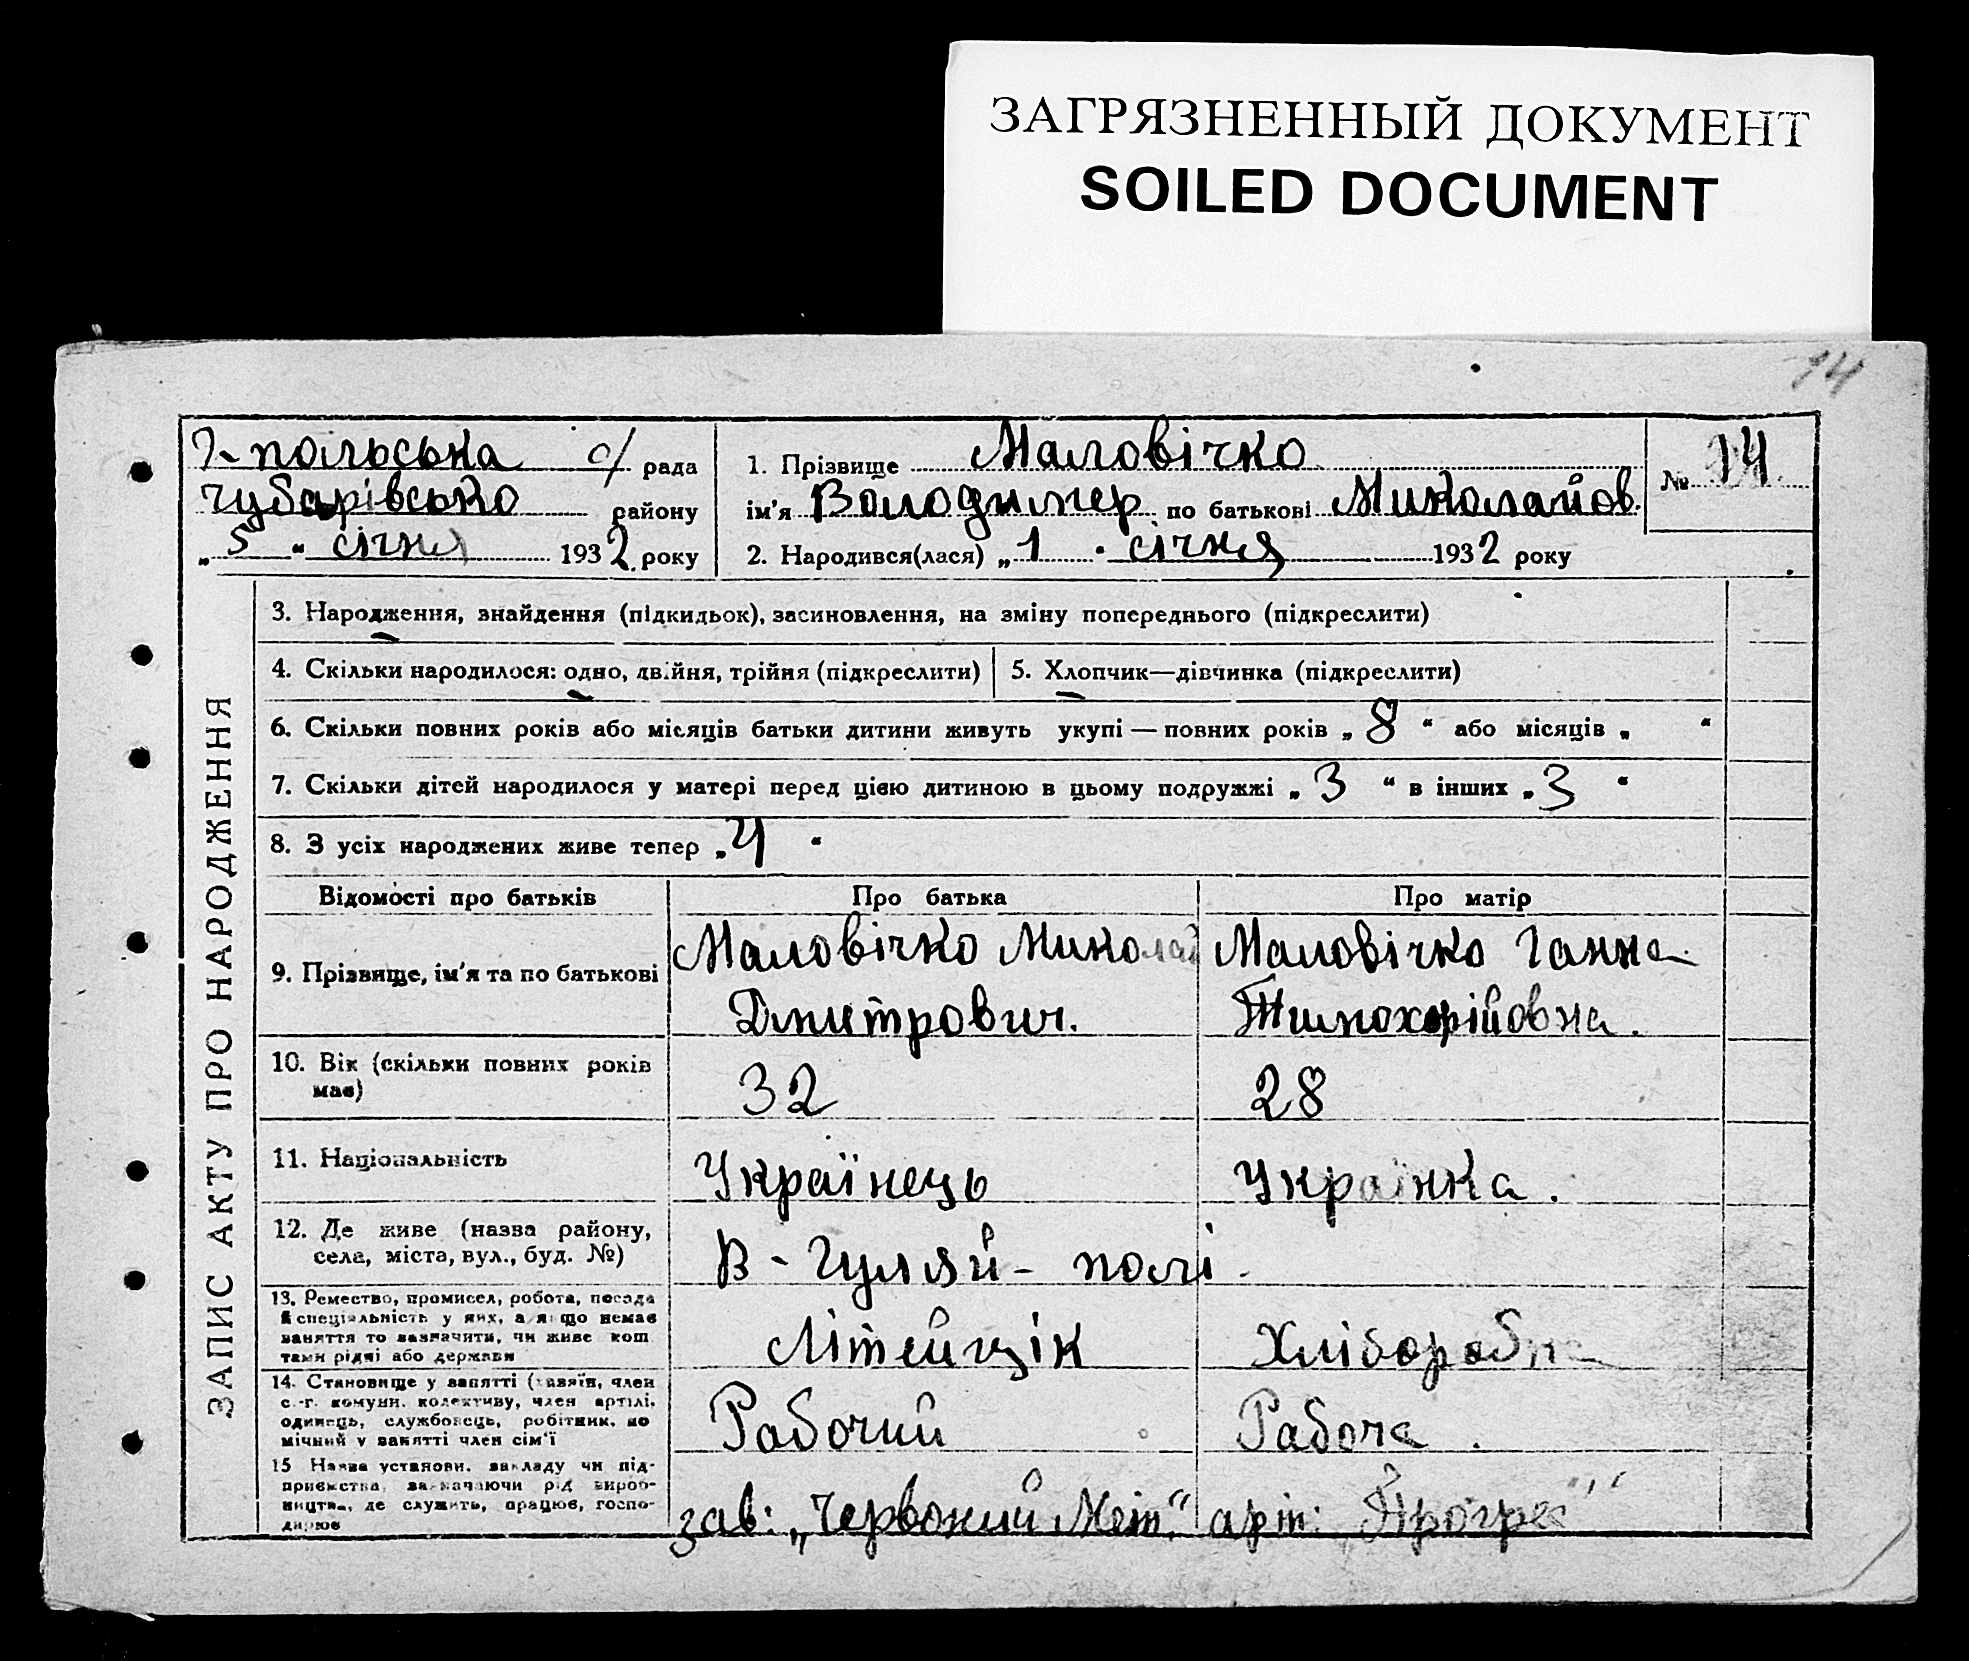 ЗАГРЯЗНЕННЫЙ ДОКУМЕНТ
SOILED DOCUMENT
14
Г-польська с/ рада
Чубарівсько району
„5“ січня 1932 року
1. Прізвище Маловічко
ім'я Володимер по батькові Миколайов.
2. Народився(лася) „1“ січня 1932 року
№ 14
ЗАПИС АКТУ ПРО НАРОДЖЕННЯ
3. Народження, знайдення (підкидьок), засиновлення, на зміну попереднього (підкреслити)
4. Скільки народилося: одно, двійня, трійня (підкреслити)
5. Хлопчик—дівчинка (підкреслити)
6. Скільки повних років або місяців батьки дитини живуть укупі — повних років „8“ або місяців „ “
7. Скільки дітей народилося у матері перед цією дитиною в цьому подружжі „3“ в інших „3“
8. З усіх народжених живе тепер „4“
Відомості про батьків
Про батька
Про матір
9. Прізвище, ім'я та по батькові
Маловічко Миколай
Дмитрович.
Маловічко Ганна
Тимохорійовна.
10. Вік (скільки повних років
має)
32
28
11. Національність
Українець
Українка.
12. Де живе (назва району,
села, міста, вул., буд. №)
В - Гуляй - полі -
13. Ремество, промисел, робота, посада
й спеціяльність у них, а якщо немає
заняття то зазначити, чи живе кош.
тами рідні або держави
Літейщік
Хлібороб
14. Становище у занятті (хазяїн, член
с.-г. комуни, колективу, член артілі,
одинець, службовець, робітник, по
мічний у занятті член сім'ї
Рабочий
Рабоча.
15 Назва установи, закладу чи під-
приємства, зазначаючи рід вироб-
ництва, де служить, працює, госпо-
дарює
зав: „Червоний Мет.“
арт: „Прогрес“